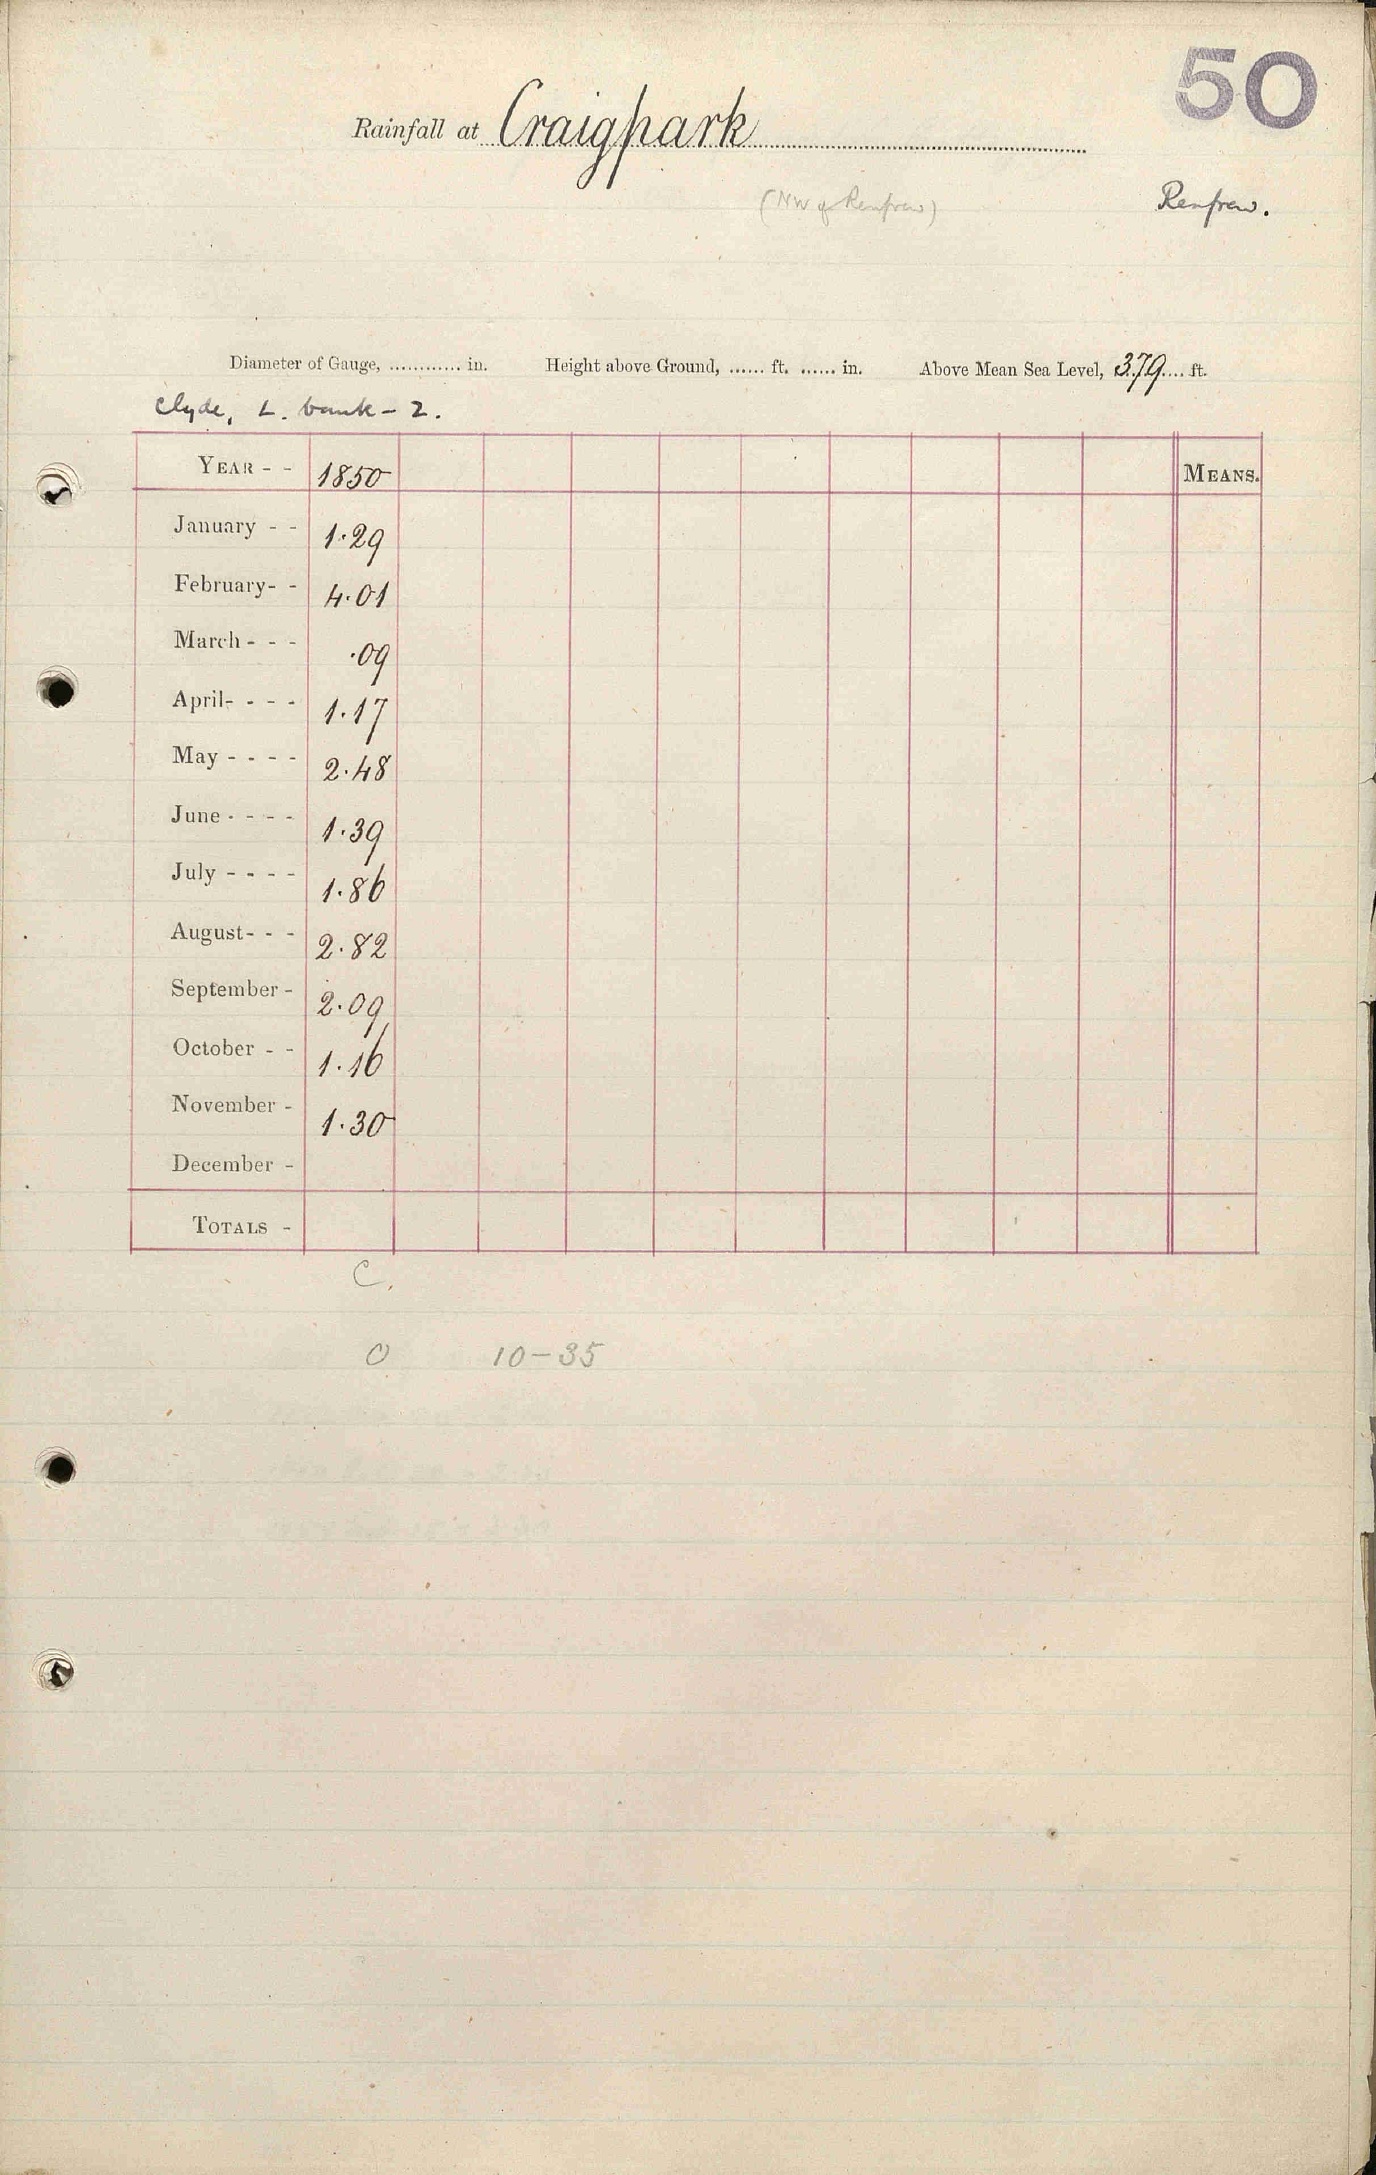 50
Rainfall at Craigpark
(NW of Renfrew)
Renfrew.
Diameter of Gauge, ............ in. Height above Ground, ...... ft. ...... in. Above Mean Sea Level, 379.... ft.
Clyde, L. bank - 2.
YEAR - - 1850 MEANS.
January - - 1.29
February- - 4.01
March - - - .09
April- - - - 1.17
May - - - - 2.48
June - - - - 1.39
July - - - - 1.86
August- - - 2.82
September - 2.09
October - - 1.16
November - 1.30
December -
TOTALS -
C.
O 10-35